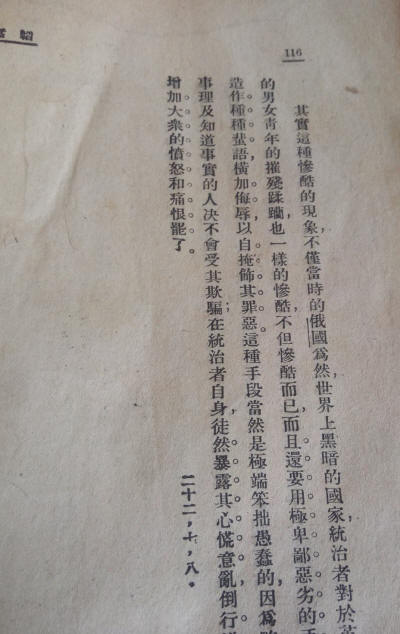 116
其實這種慘酷的現象,不僅當時的俄國爲然,世界上黑暗的國家,統治者對於
的男女青年的摧殘蹂躪,也一樣的慘酷,不但慘酷而已,而且還要用極卑鄙惡劣的
造作種種蜚語,橫加侮辱,以自掩飾其罪惡。這種手段當然是極端笨拙愚蠢的,因爲
事理及知道事實的人決不會受其欺騙;在統治者自身,徒然暴露其心慌意亂,倒行
增加大衆的憤怒和痛恨罷了。
二十二,七,八。